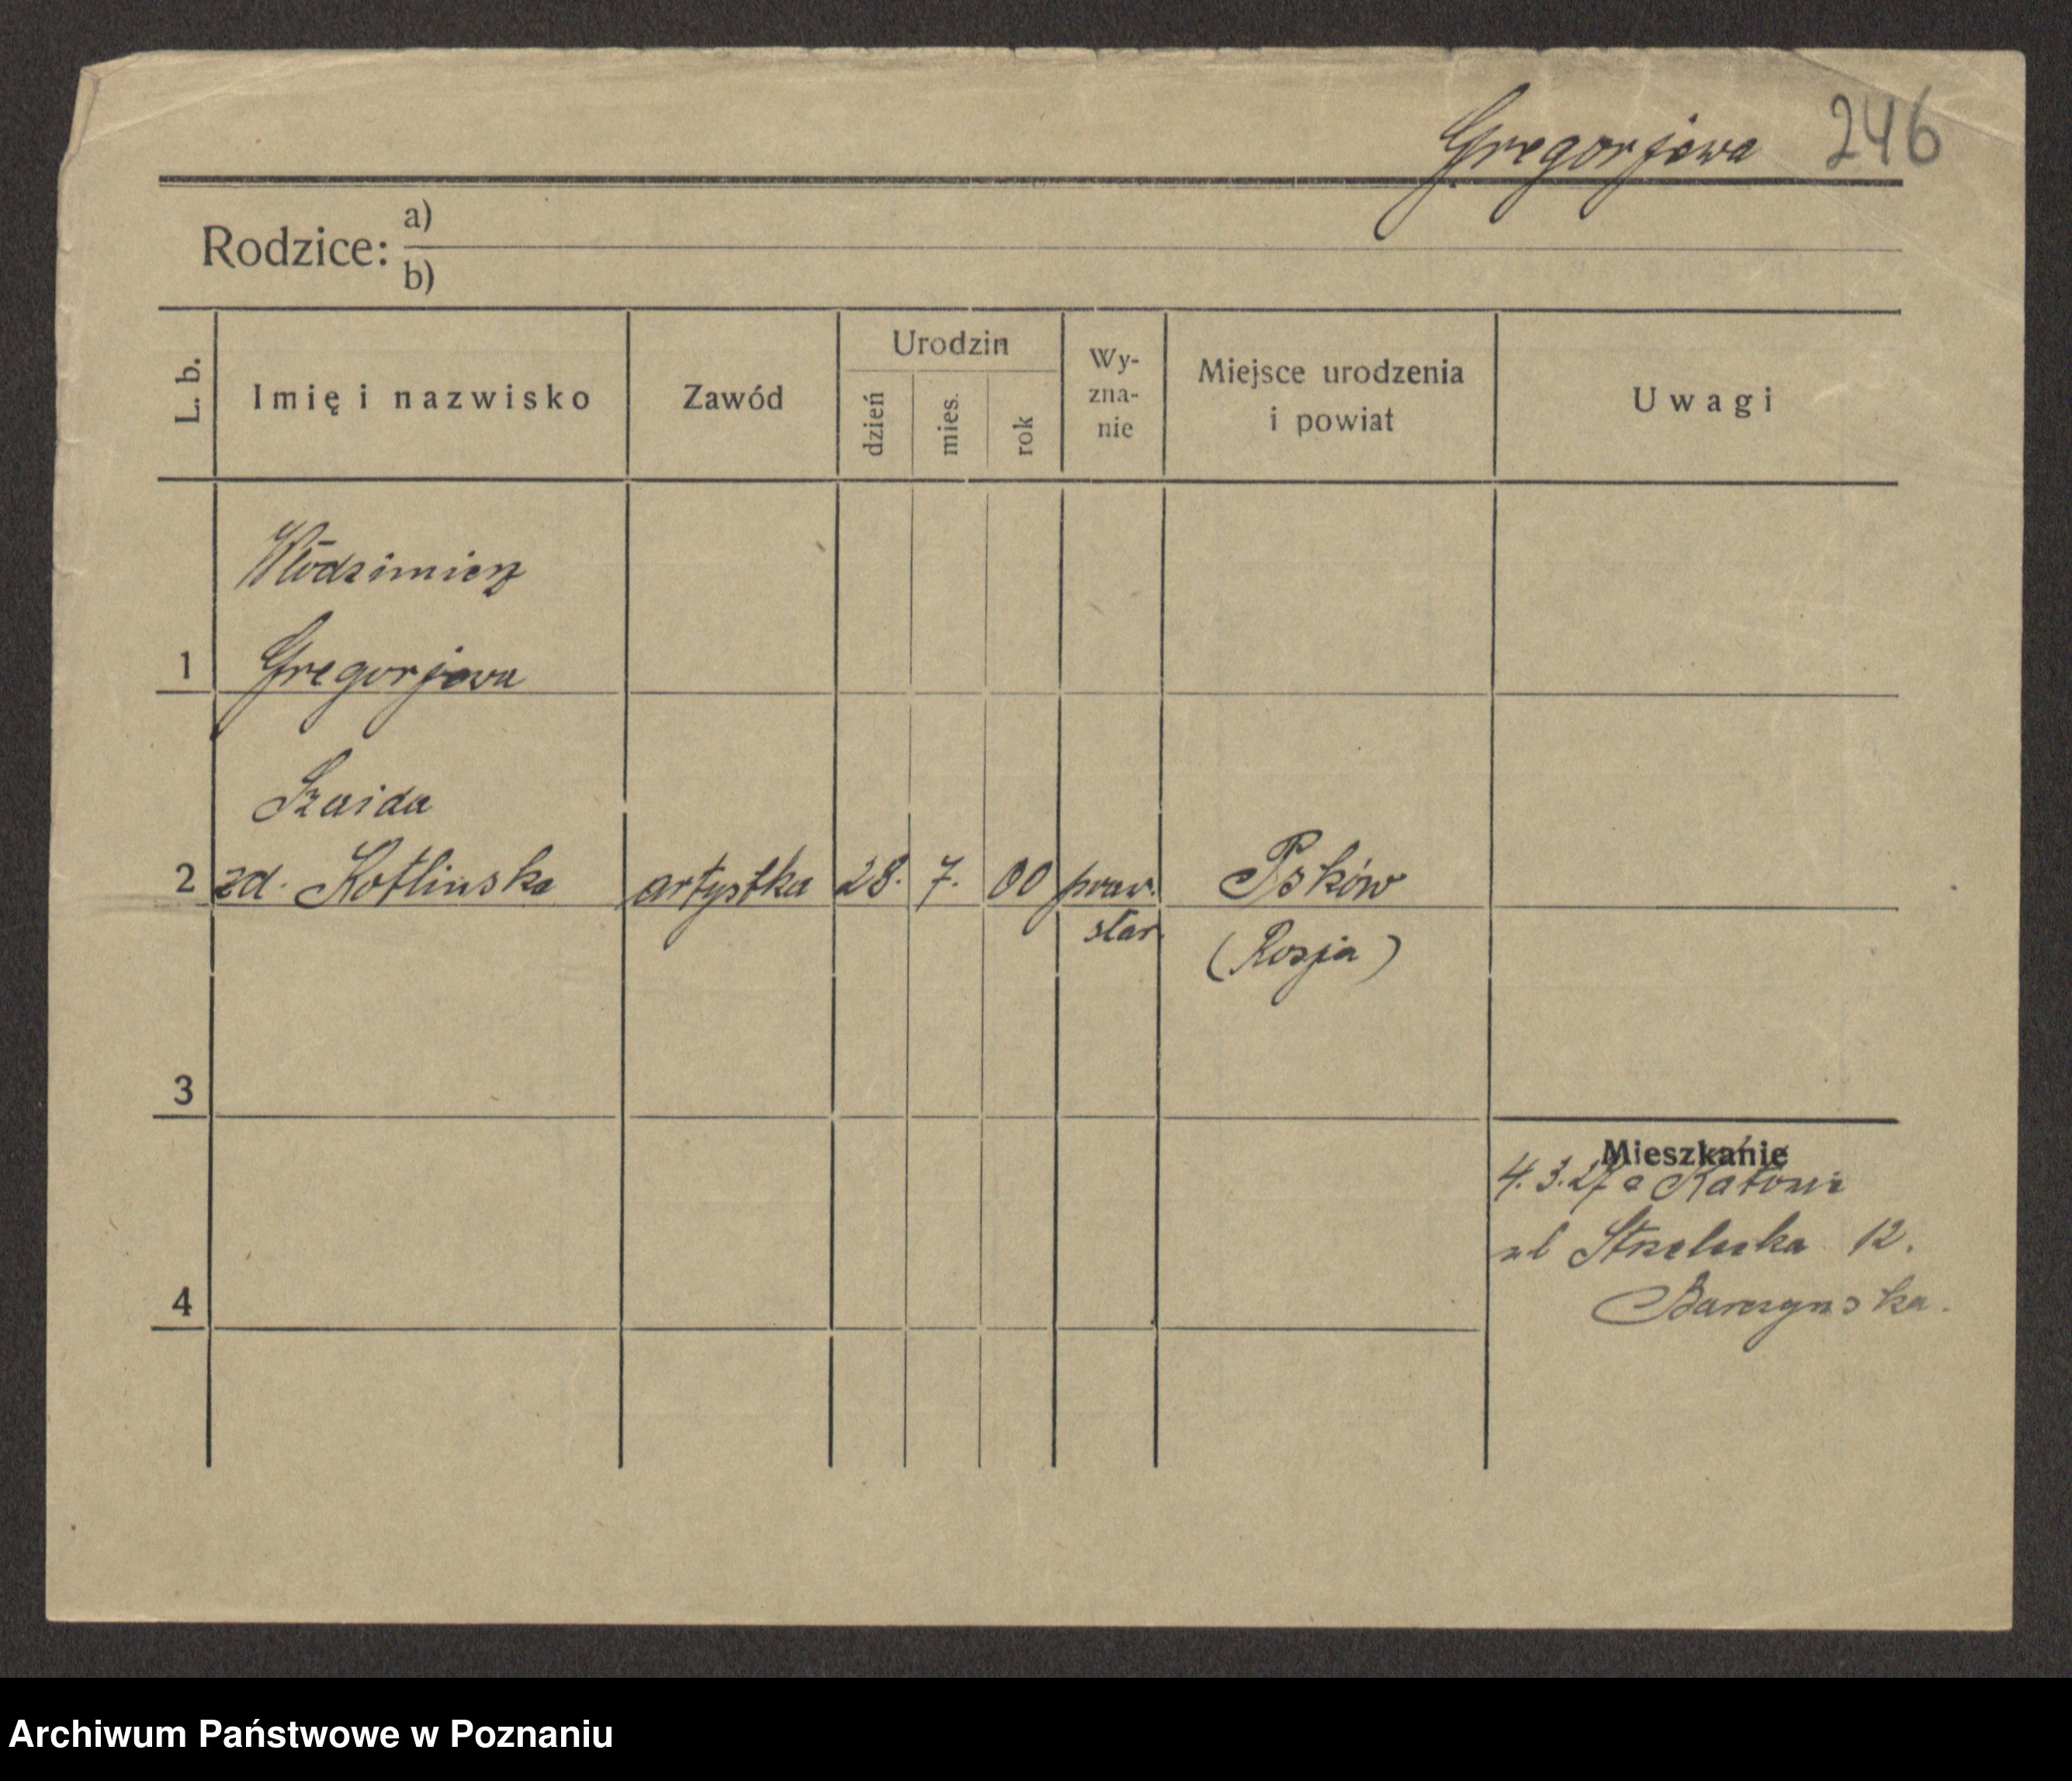 Gregorjewa 246
Rodzice: a)
b)
L. b. Imię i nazwisko Zawód Urodzin dzień mies. rok Wy-zna-nie Miejsce urodzenia i powiat Uwagi
Włodzimierz
1 Gregorjewa
Szaida
2 zd. Kotlinska artystka 28. 7. 00 praw. Psków
star. (Rosja)
3
Mieszkanie
4. 3. 27 z Katowic
ul Strzelecka 12.
4 Barczynska.
Archiwum Państwowe w Poznaniu